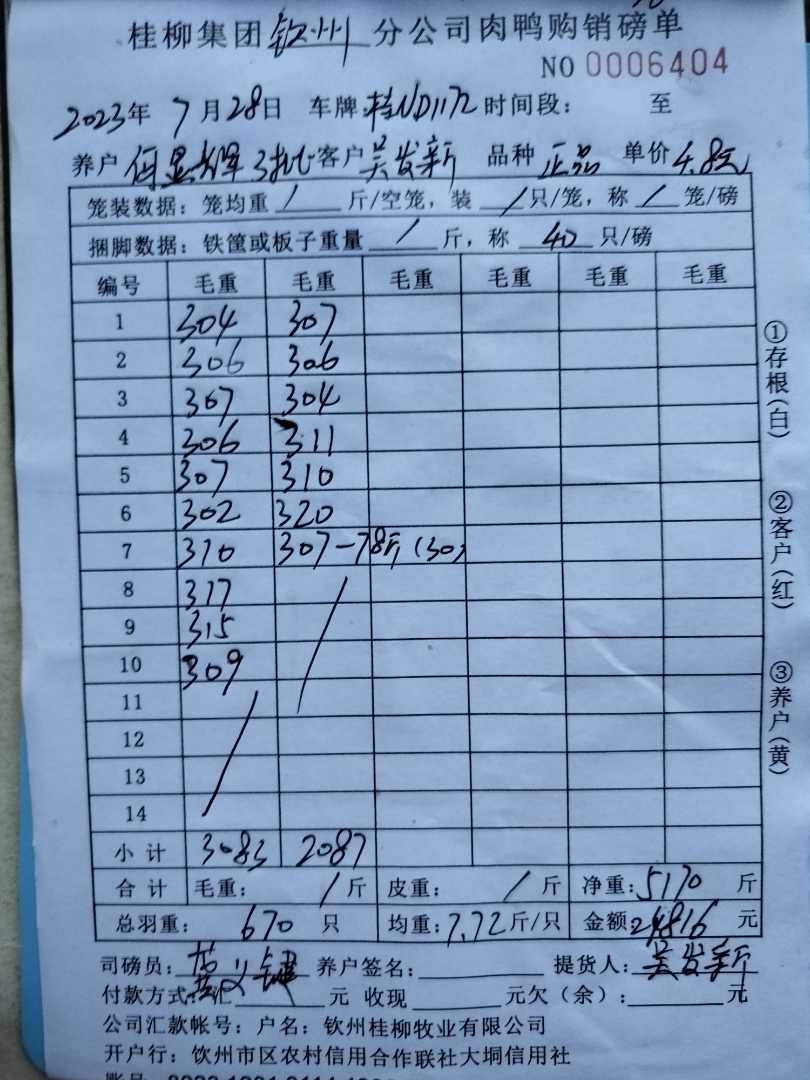 桂柳集团钦州分公司肉鸭购销磅单
NO 0006404
2023年7月28日 车牌:桂ND1172 时间段: 至
养户 何显辉 3批 客户 吴发新 品种 正品 单价 4.8元
笼装数据: 笼均重 / 斤/空笼, 装 / 只/笼, 称 / 笼/磅
捆脚数据: 铁筐或板子重量 / 斤, 称 40 只/磅
编号 毛重 毛重 毛重 毛重 毛重 毛重
1 304 307
2 306 306
3 307 304
4 306 311
5 307 310
6 302 320
7 310 307-78斤(30)
8 317
9 315
10 309
11
12
13
14
小计 3083 2087
合计 毛重: / 斤 皮重: / 斤 净重: 5170 斤
总羽重: 670 只 均重: 7.72斤/只 金额: 24816 元
司磅员: 黄义键 养户签名: 提货人: 吴发新
付款方式: 汇 元 收现 元欠(余): 元
公司汇款帐号: 户名: 钦州桂柳牧业有限公司
开户行: 钦州市区农村信用合作联社大垌信用社
①存根(白)
②客户(红)
③养户(黄)